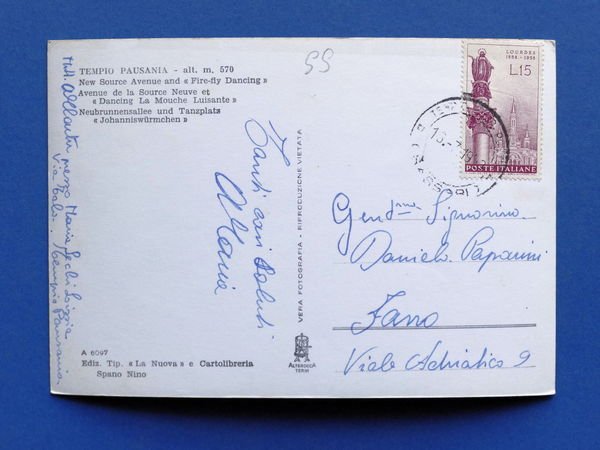 TEMPIO PAUSANIA - alt. m. 570
New Source Avenue and « Fire-fly Dancing »
Avenue de la Source Neuve et
« Dancing La Mouche Luisante »
Neubrunnensallee und Tanzplatz
« Johanniswürmchen »
55
LOURDES
1858 - 1958
L.15
POSTE ITALIANE
Tanti cari saluti
VERA FOTOGRAFIA - RIPRODUZIONE VIETATA
Gent.ma Signorina
Daniela Paparini
Fano
Viale Adriatico 9
Maria
Tempio Pausania
A 6097
Ediz. Tip. « La Nuova » e Cartolibreria
Spano Nino
ALTEROCCA
TERNI